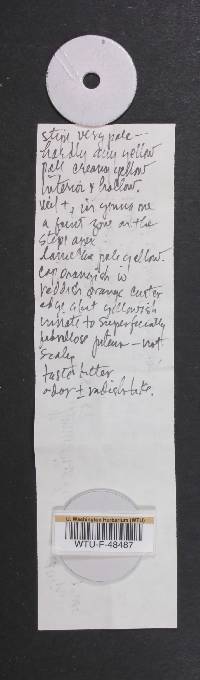 stipe very pale –
hardly any yellow
pale creamy yellow
interior & hollow.
veil +, in young one
a faint zone on the
stipe apex
lamellae pale yellow.
cap orangish w
reddish orange center
edge a bit yellowish
innate to superficially
fibrillose pileus – not
scaley
taste bitter
odor ± radishlike.
U. Washington Herbarium (WTU)
WTU-F-48487